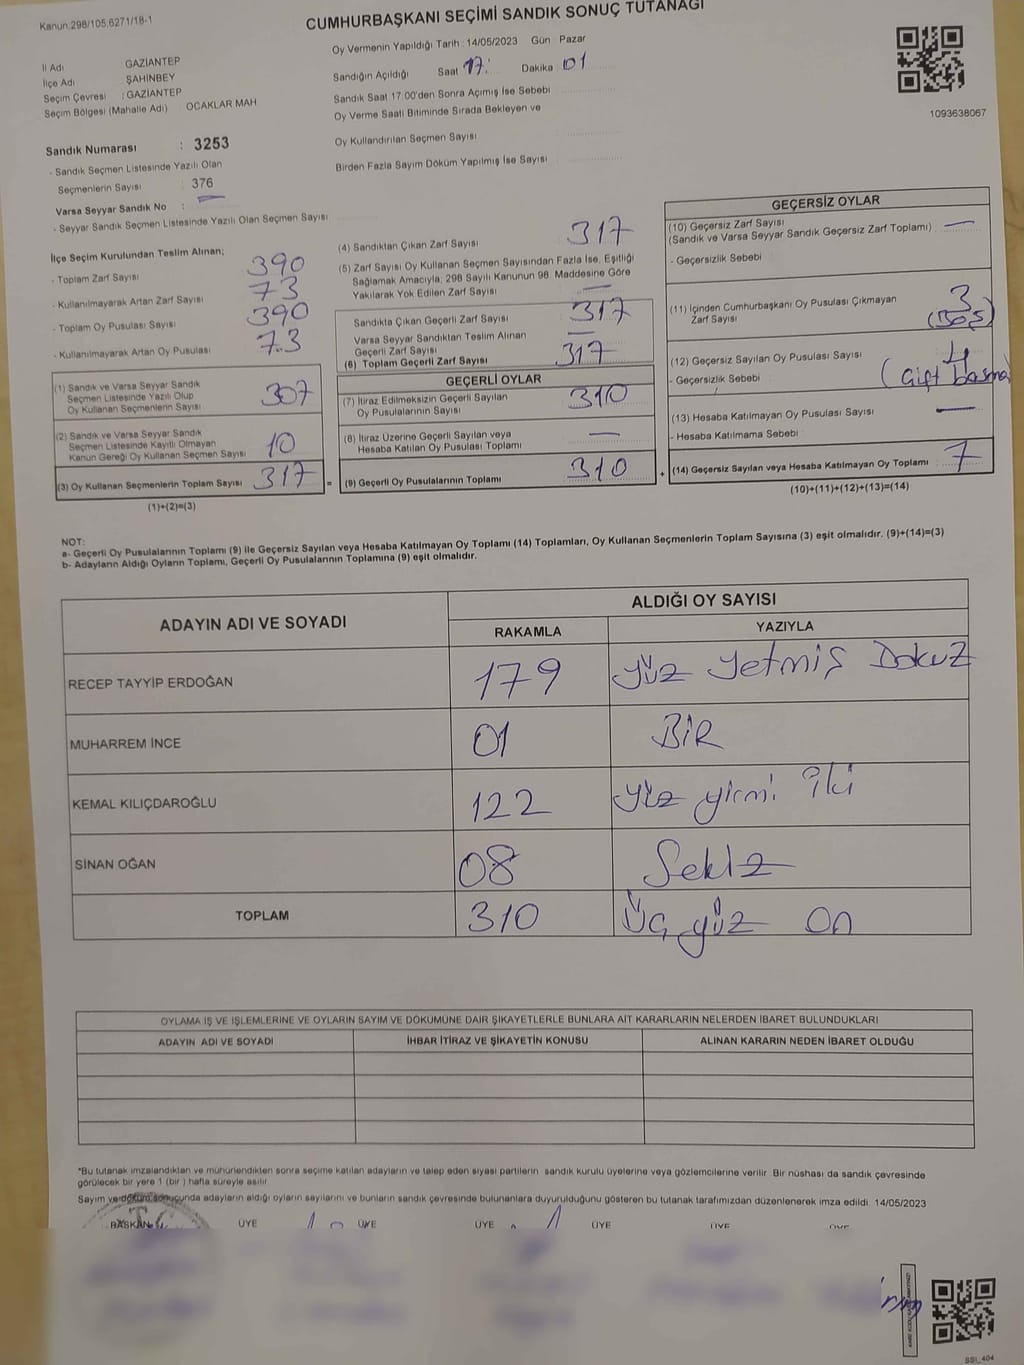 Kanun:298/105,6271/18-1
CUMHURBAŞKANI SEÇİMİ SANDIK SONUÇ TUTANAĞI
İl Adı GAZİANTEP
İlçe Adı ŞAHİNBEY
Seçim Çevresi : GAZİANTEP
Seçim Bölgesi (Mahalle Adı) OCAKLAR MAH
Sandık Numarası : 3253
- Sandık Seçmen Listesinde Yazılı Olan
Seçmenlerin Sayısı : 376
Varsa Seyyar Sandık No :
- Seyyar Sandık Seçmen Listesinde Yazılı Olan Seçmen Sayısı
Oy Vermenin Yapıldığı Tarih : 14/05/2023 Gün : Pazar
Sandığın Açıldığı Saat 17: Dakika 01
Sandık Saat 17:00'den Sonra Açımış İse Sebebi
Oy Verme Saati Bitiminde Sırada Bekleyen ve
Oy Kullandırılan Seçmen Sayısı
Birden Fazla Sayım Döküm Yapılmış İse Sayısı
1093638067
İlçe Seçim Kurulundan Teslim Alınan;
- Toplam Zarf Sayısı 390
- Kullanılmayarak Artan Zarf Sayısı 73
- Toplam Oy Pusulası Sayısı 390
- Kullanılmayarak Artan Oy Pusulası 73
(1) Sandık ve Varsa Seyyar Sandık
Seçmen Listesinde Yazılı Olup
Oy Kullanan Seçmenlerin Sayısı 307
(2) Sandık ve Varsa Seyyar Sandık
Seçmen Listesinde Kayıtlı Olmayan
Kanun Gereği Oy Kullanan Seçmen Sayısı 10
(3) Oy Kullanan Seçmenlerin Toplam Sayısı 317 =
(1)+(2)=(3)
(4) Sandıktan Çıkan Zarf Sayısı 317
(5) Zarf Sayısı Oy Kullanan Seçmen Sayısından Fazla İse, Eşitliği
Sağlamak Amacıyla, 298 Sayılı Kanunun 98. Maddesine Göre
Yakılarak Yok Edilen Zarf Sayısı —
Sandıkta Çıkan Geçerli Zarf Sayısı 317
Varsa Seyyar Sandıktan Teslim Alınan
Geçerli Zarf Sayısı —
(6) Toplam Geçerli Zarf Sayısı 317
GEÇERLİ OYLAR
(7) İtiraz Edilmeksizin Geçerli Sayılan
Oy Pusulalarının Sayısı 310
(8) İtiraz Üzerine Geçerli Sayılan veya
Hesaba Katılan Oy Pusulası Toplamı —
(9) Geçerli Oy Pusulalarının Toplamı 310 +
GEÇERSİZ OYLAR
(10) Geçersiz Zarf Sayısı
(Sandık ve Varsa Seyyar Sandık Geçersiz Zarf Toplamı) —
- Geçersizlik Sebebi
(11) İçinden Cumhurbaşkanı Oy Pusulası Çıkmayan
Zarf Sayısı 3
(Boş)
(12) Geçersiz Sayılan Oy Pusulası Sayısı 4
- Geçersizlik Sebebi (Çift basma)
(13) Hesaba Katılmayan Oy Pusulası Sayısı —
- Hesaba Katılmama Sebebi
(14) Geçersiz Sayılan veya Hesaba Katılmayan Oy Toplamı 7
(10)+(11)+(12)+(13)=(14)
NOT:
a- Geçerli Oy Pusulalarının Toplamı (9) ile Geçersiz Sayılan veya Hesaba Katılmayan Oy Toplamı (14) Toplamları, Oy Kullanan Seçmenlerin Toplam Sayısına (3) eşit olmalıdır. (9)+(14)=(3)
b- Adayların Aldığı Oyların Toplamı, Geçerli Oy Pusulalarının Toplamına (9) eşit olmalıdır.
ADAYIN ADI VE SOYADI
ALDIĞI OY SAYISI
RAKAMLA YAZIYLA
RECEP TAYYİP ERDOĞAN 179 Yüz Yetmiş Dokuz
MUHARREM İNCE 01 BİR
KEMAL KILIÇDAROĞLU 122 Yüz yirmi iki
SİNAN OĞAN 08 Sekiz
TOPLAM 310 Üç yüz On
OYLAMA İŞ VE İŞLEMLERİNE VE OYLARIN SAYIM VE DÖKÜMÜNE DAİR ŞİKAYETLERLE BUNLARA AİT KARARLARIN NELERDEN İBARET BULUNDUKLARI
ADAYIN ADI VE SOYADI İHBAR İTİRAZ VE ŞİKAYETİN KONUSU ALINAN KARARIN NEDEN İBARET OLDUĞU
*Bu tutanak imzalandıktan ve mühürlendikten sonra seçime katılan adayların ve talep eden siyasi partilerin sandık kurulu üyelerine veya gözlemcilerine verilir. Bir nüshası da sandık çevresinde
görülecek bir yere 1 (bir) hafta süreyle asılır.
Sayım ve döküm sonucunda adayların aldığı oyların sayılarını ve bunların sandık çevresinde bulunanlara duyurulduğunu gösteren bu tutanak tarafımızdan düzenlenerek imza edildi. 14/05/2023
BAŞKAN ÜYE ÜYE ÜYE ÜYE ÜYE ÜYE
SSİ_404